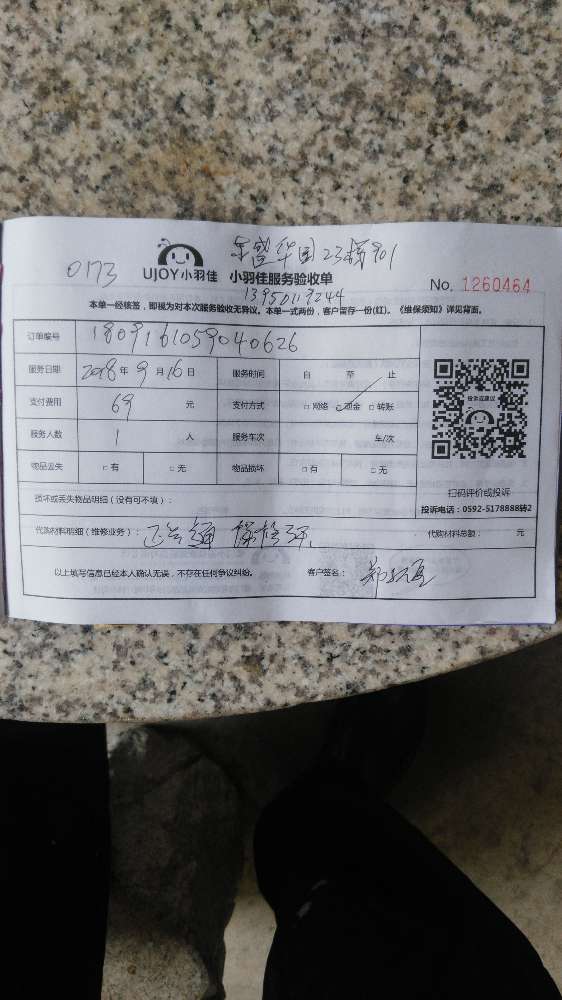 华园23楼901
0173 UJOY小羽佳 小羽佳服务验收单 No. 1260464
本单一经核签，即视为对本次服务验收无异议。本单一式两份，客户留存一份(红)。《维保须知》详见背面。
订单编号 1809161059040626
服务日期 2018年9月16日 服务时间 自 至 止
支付费用 69 元 支付方式 □网络 □现金 □转账
服务人数 1 人 服务车次 车/次
物品丢失 □有 □无 物品损坏 □有 □无
扫码评价或投诉
投诉电话：0592-5178888转2
损坏或丢失物品明细（没有可不填）：
代购材料明细（维修业务）： 代购材料总额： 元
以上填写信息已经本人确认无误，不存在任何争议纠纷。 客户签名：